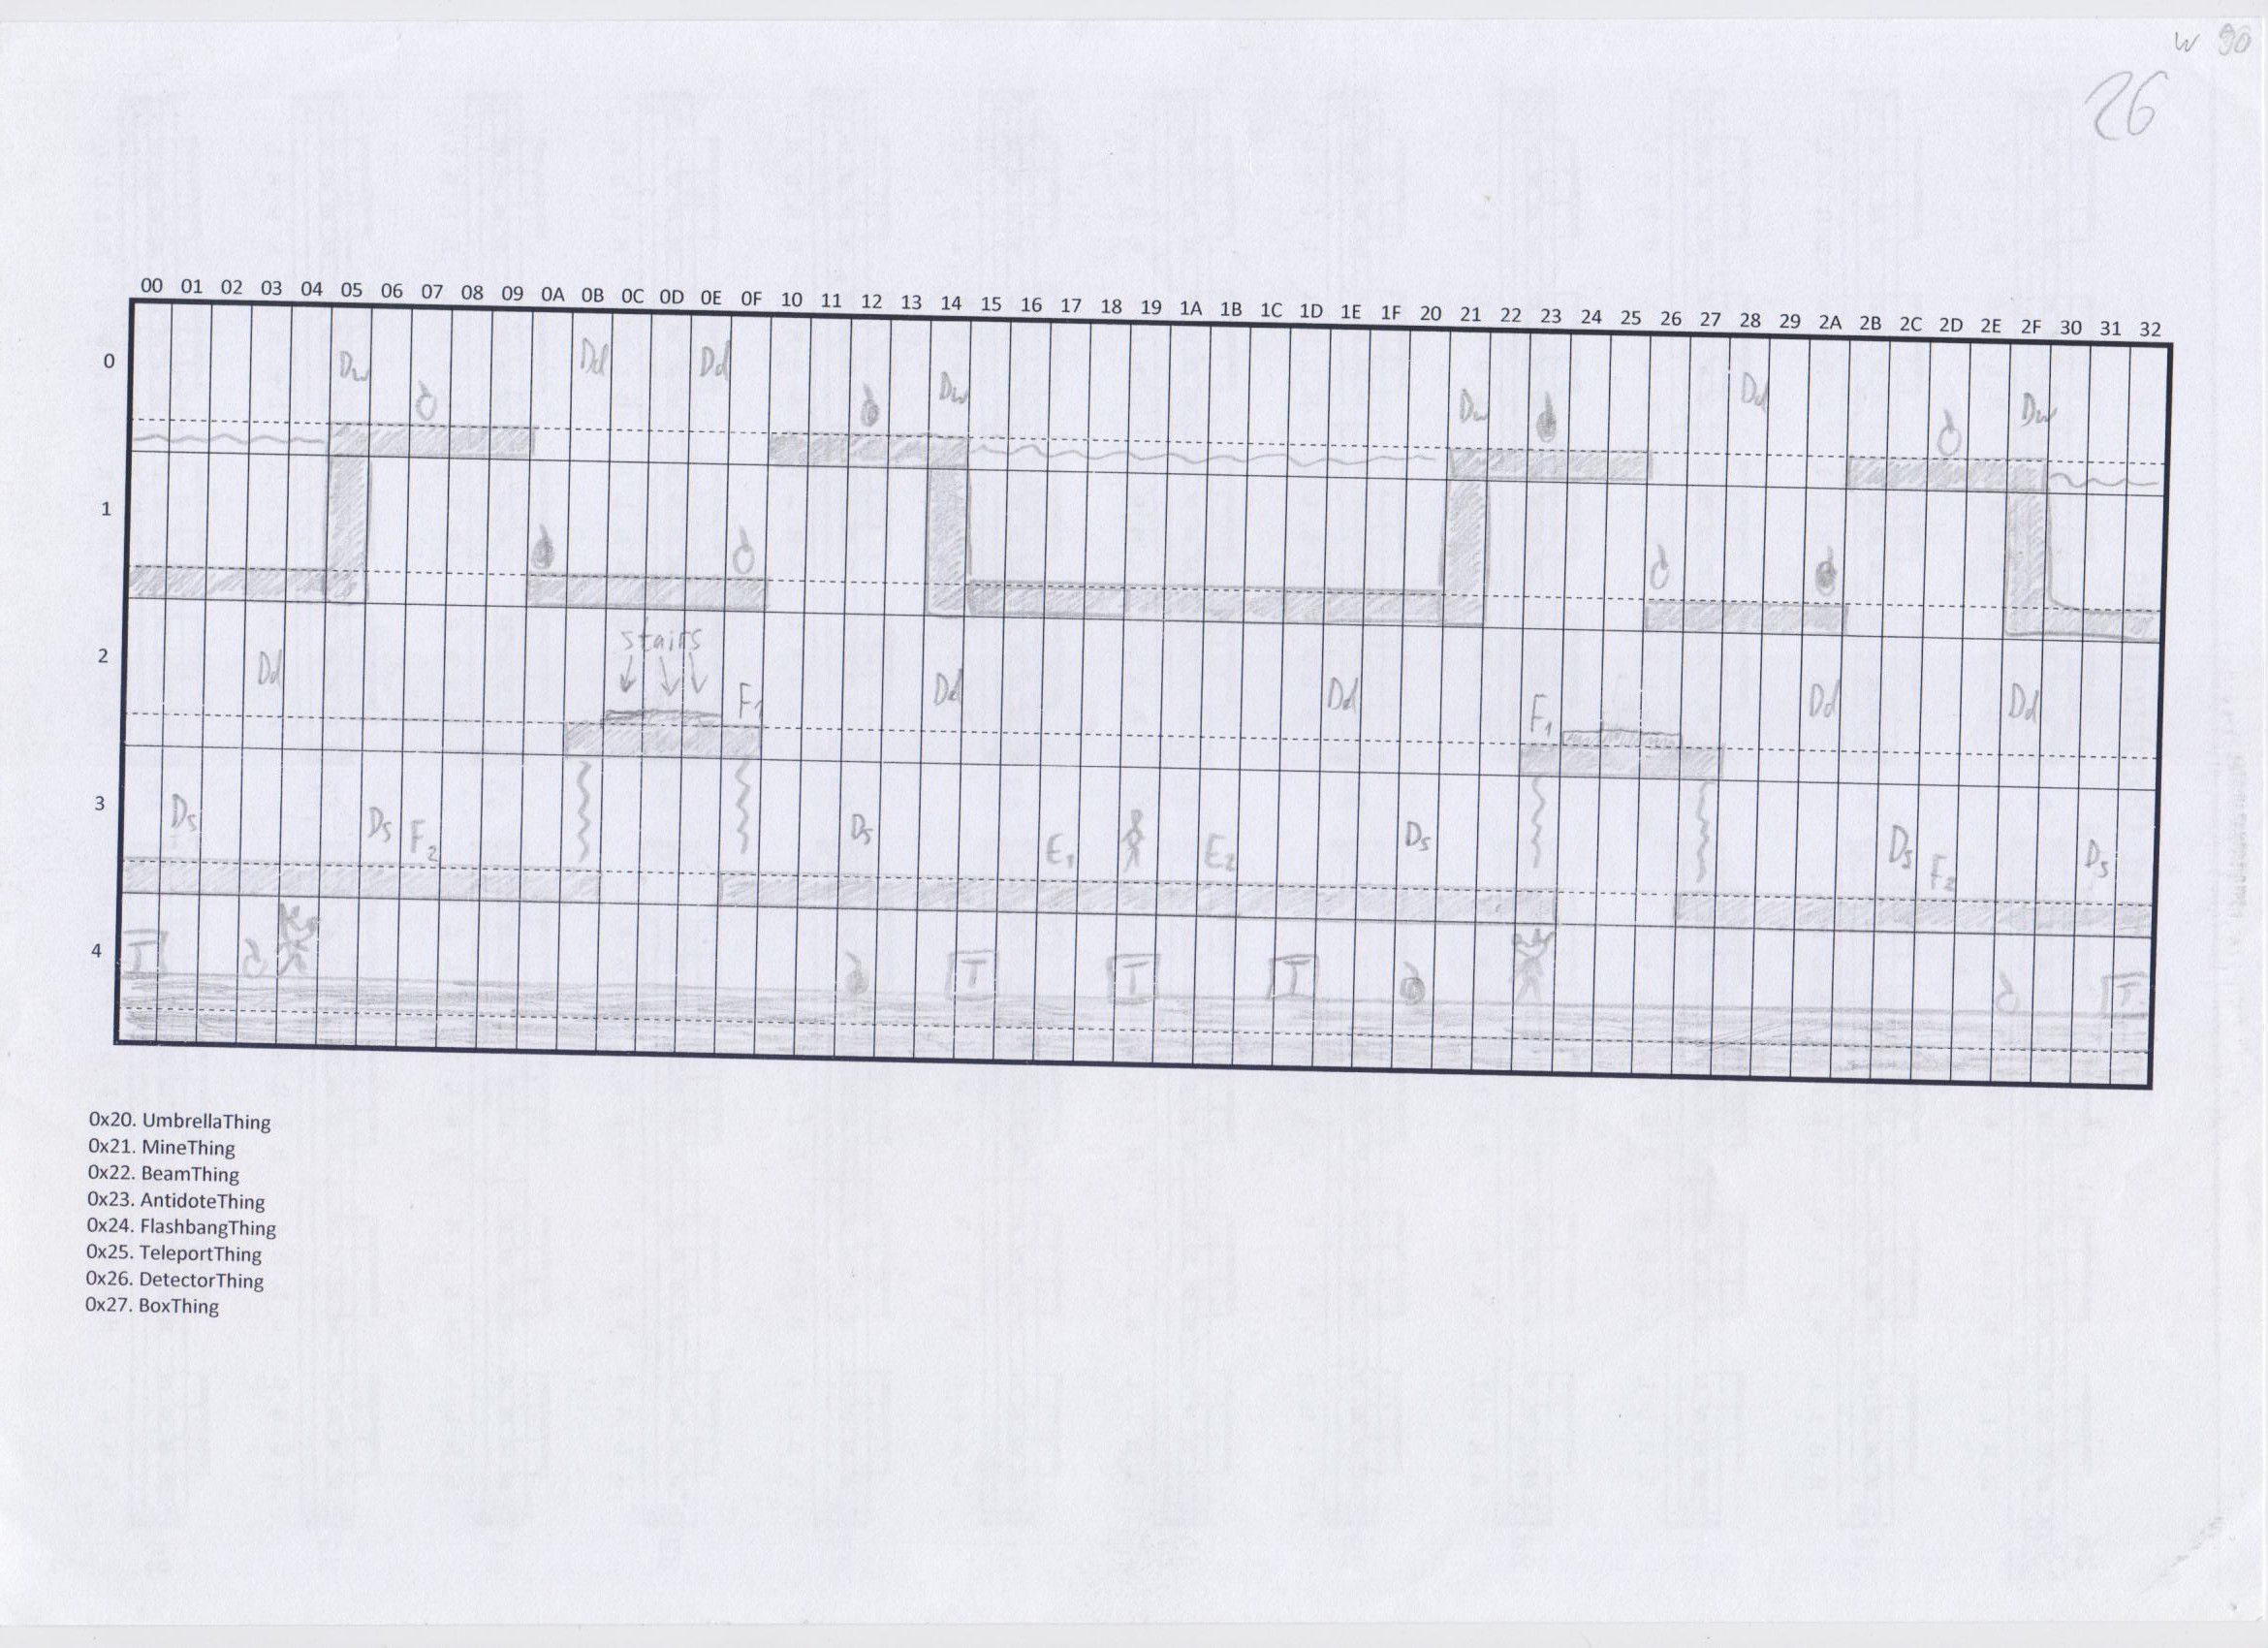 w 90
26
00 01 02 03 04 05 06 07 08 09 0A 0B 0C 0D 0E 0F 10 11 12 13 14 15 16 17 18 19 1A 1B 1C 1D 1E 1F 20 21 22 23 24 25 26 27 28 29 2A 2B 2C 2D 2E 2F 30 31 32
0
Dw Dd Dd Dw Dw Dd Dw
1
stairs
2
Dd F1 Dd Dd F1 Dd Dd
3
Ds Ds F2 Ds E1 E2 Ds Ds F2 Ds
4
T T T T T
0x20. UmbrellaThing
0x21. MineThing
0x22. BeamThing
0x23. AntidoteThing
0x24. FlashbangThing
0x25. TeleportThing
0x26. DetectorThing
0x27. BoxThing